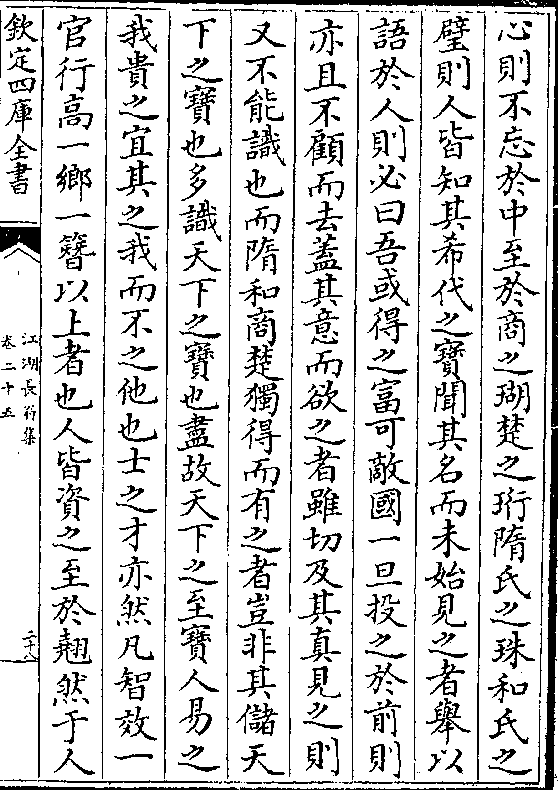 心則不忘於中至於商之瑚楚之珩隋氏之珠和氏之
璧則人皆知其希代之寶聞其名而未始見之者舉以
語於人則必曰吾或得之富可敵國一旦投之於前則
亦且不顧而去蓋其意而欲之者雖切及其真見之則
又不能識也而隋和商楚獨得而有之者豈非其儲天
下之寶也多識天下之寶也盡故天下之至寶人易之
我貴之宜其之我而不之他也士之才亦然凡智效一
官行高一鄉一簪以上者也人皆資之至於翹然于人
欽定四庫全書
江湖長翁集
卷二十五
二十八